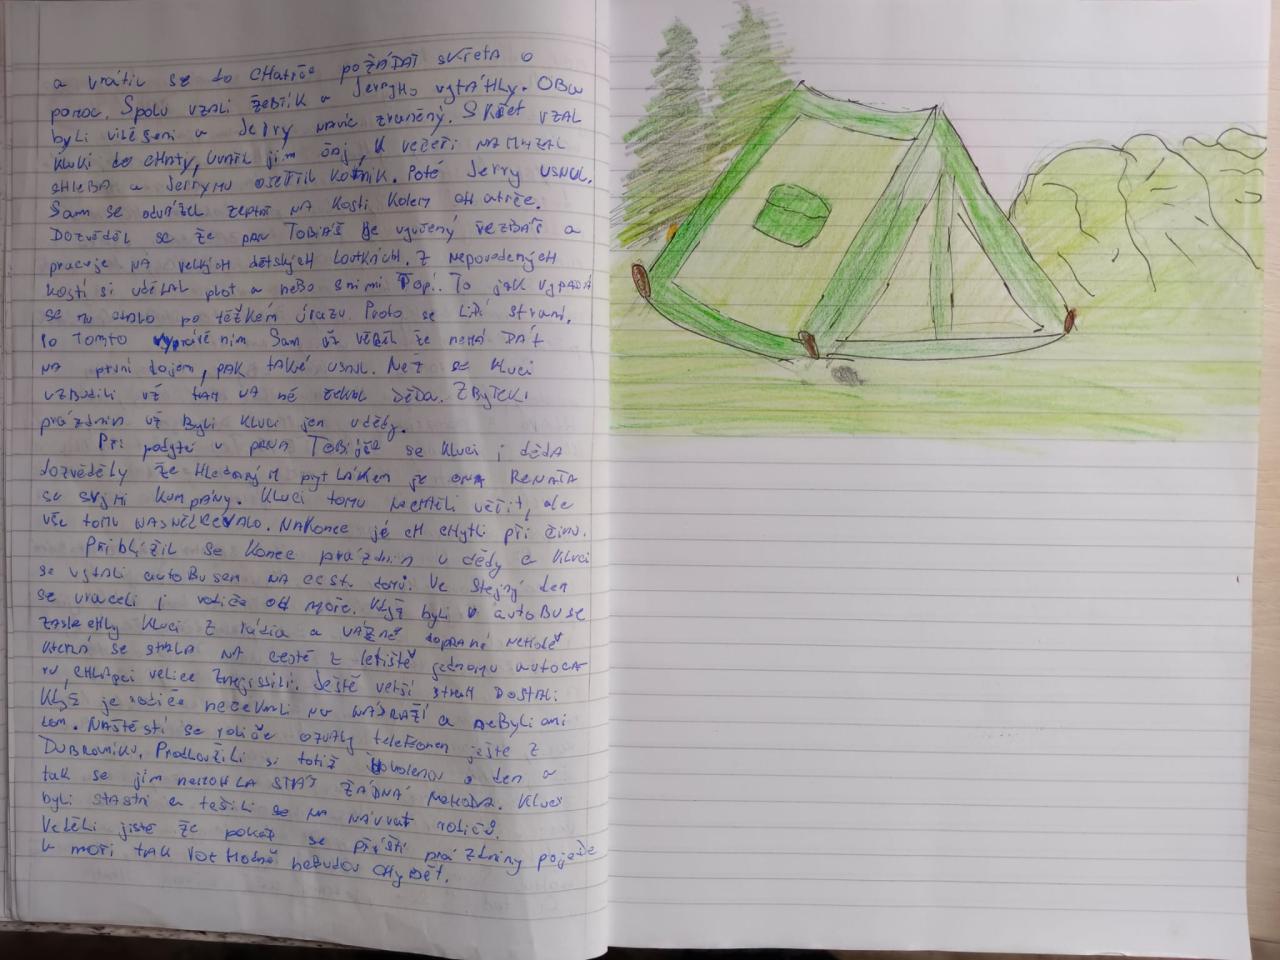 a vrátil se do CHatrče požÁDAT skřeta o
pomoc. Spolu vzali žebřík a Jerryho vytÁHly. OBa
byli vděšeni a Jerry navíc zraněný. Skřet VZAL
kluki do CHAty, uvařil jim čaj, K večeři NAMAZAL
CHLeBA a Jerrymu ošetřil kotník. Poté Jerry usnul.
Sam se odvážel zeptat NA Kosti Kolem CHatrče.
Dozvěděl se že pan TOBIÁŠ je vyučený ŘEZBÁŘ a
pracuje NA velkých dětských loutkách. Z nepovedených
kostí si udělal plot a nebo s nimi Topí. To jak vypadá
se mu stalo po těžkém úrazu Proto se LiDí straní.
Po Tomto vyprávěním Sam už věděl že nemá DÁT
NA první dojem, pAK tAKé usnul. Než se kluci
vzbudili už tam NA ně čekal DěDa. ZByteK
prázdnin už Byli Kluci jen u dědy.
Při pobytě u pana TOBiáše se Kluci i děda
dozvěděly že HLedaným pytLáKem je ona RENATA
se svými Kumpány. Kluci tomu NecHtěli věřit, ale
vše tomu NASvěDčovALO. NAKonec je cHytli při činu.
PřiBLížil se Konec prázdnin u dědy a Kluci
se vydali autoBusem NA cestu domů. Ve stejný den
se vraceli i rodiče od moře. Když byli v autoBuse
zaslecHly Kluci z rádia o vážné dopravné NeHodě
Která se stALA NA cestě z letiště jednomu autocA
ru, CHLApci velice znejistili. Ještě větší stracH DostALi
Když je rodiče nečekali NA NÁDRAŽÍ a neByli ani
Dom. NAštěstí se rodiče ozvaly telefonem ještě z
DuBrovníku. Prodloužili si totiž dovolenou o den a
tak se jim nemoHLA STÁT ŽÁDNÁ NEHODA. Kluci
byli šťastni a těšili se NA NÁvrat rodičů.
Věděli jistě že pokaď se příští prázdniny pojede
k moři tAK rozHodně neBudou CHyBět.